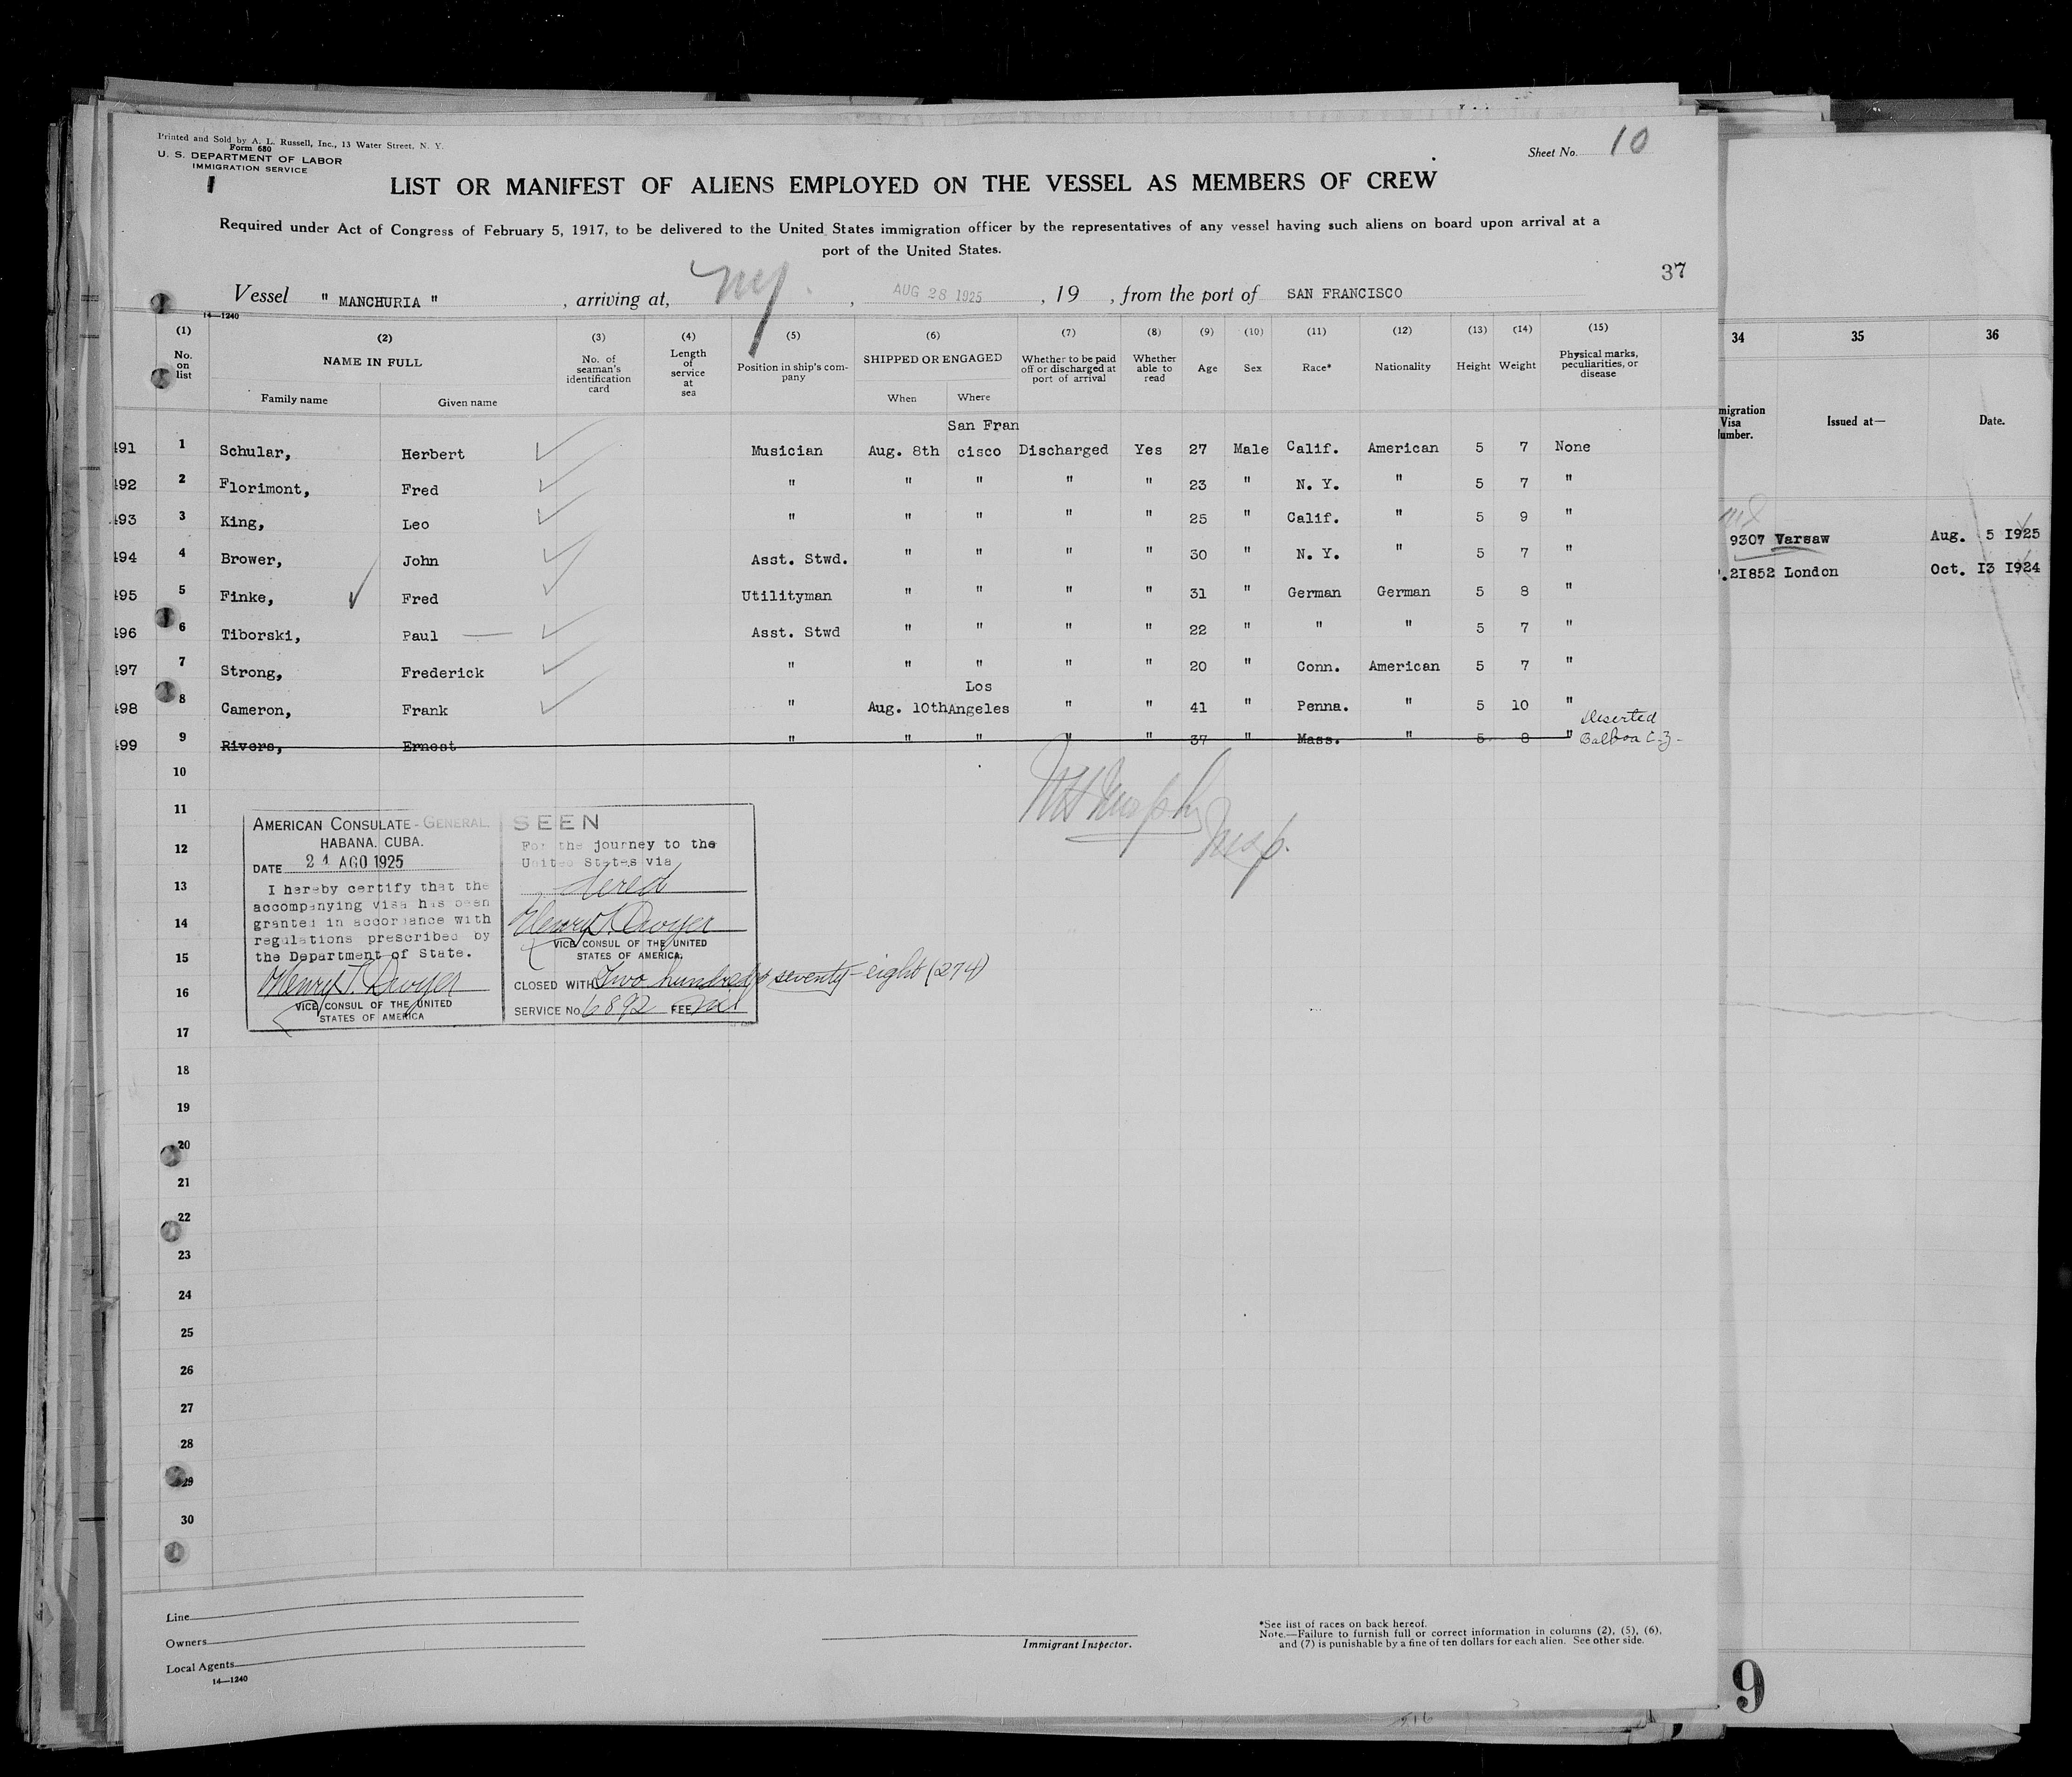 Printed and Sold by A. L. Russell, Inc., 13 Water Street, N. Y.
Form 680
U. S. DEPARTMENT OF LABOR
IMMIGRATION SERVICE
Sheet No. 10
LIST OR MANIFEST OF ALIENS EMPLOYED ON THE VESSEL AS MEMBERS OF CREW
Required under Act of Congress of February 5, 1917, to be delivered to the United States immigration officer by the representatives of any vessel having such aliens on board upon arrival at a
port of the United States.
37
Vessel " MANCHURIA " , arriving at, NY. , AUG 28 1925 , 19 , from the port of SAN FRANCISCO
14—1240
(1) (2) (3) (4) (5) (6) (7) (8) (9) (10) (11) (12) (13) (14) (15)
No. on list NAME IN FULL Family name Given name No. of seaman's identification card Length of service at sea Position in ship's company SHIPPED OR ENGAGED When Where Whether to be paid off or discharged at port of arrival Whether able to read Age Sex Race* Nationality Height Weight Physical marks, peculiarities, or disease
San Fran
491 1 Schular, Herbert Musician Aug. 8th cisco Discharged Yes 27 Male Calif. American 5 7 None
492 2 Florimont, Fred " " " " " 23 " N. Y. " 5 7 "
493 3 King, Leo " " " " " 25 " Calif. " 5 9 "
494 4 Brower, John Asst. Stwd. " " " " 30 " N. Y. " 5 7 "
495 5 Finke, Fred Utilityman " " " " 31 " German German 5 8 "
496 6 Tiborski, Paul Asst. Stwd " " " " 22 " " " 5 7 "
497 7 Strong, Frederick " " " " " 20 " Conn. American 5 7 "
Los
498 8 Cameron, Frank " Aug. 10th Angeles " " 41 " Penna. " 5 10 "
Deserted
499 9 Rivers, Ernest " " " " " 37 " Mass. " 5 8 " Balboa C.Z-
10
11
12
13
14
15
16
17
18
19
20
21
22
23
24
25
26
27
28
29
30
AMERICAN CONSULATE - GENERAL
HABANA. CUBA.
DATE 24 AGO 1925
I hereby certify that the
accompanying visa has been
granted in accordance with
regulations prescribed by
the Department of State.
Henry T. Dwyer
VICE CONSUL OF THE UNITED
STATES OF AMERICA
SEEN
For the journey to the
United States via
direct
Henry T. Dwyer
VICE CONSUL OF THE UNITED
STATES OF AMERICA.
CLOSED WITH Two hundred seventy-eight (274)
SERVICE No. 6892 FEE nil
Murphy
Insp.
Line
Owners
Local Agents
14—1240
Immigrant Inspector.
*See list of races on back hereof.
Note.—Failure to furnish full or correct information in columns (2), (5), (6),
and (7) is punishable by a fine of ten dollars for each alien. See other side.
34 35 36
migration Visa umber. Issued at— Date.
9307 Varsaw Aug. 5 1925
.21852 London Oct. 13 1924
9